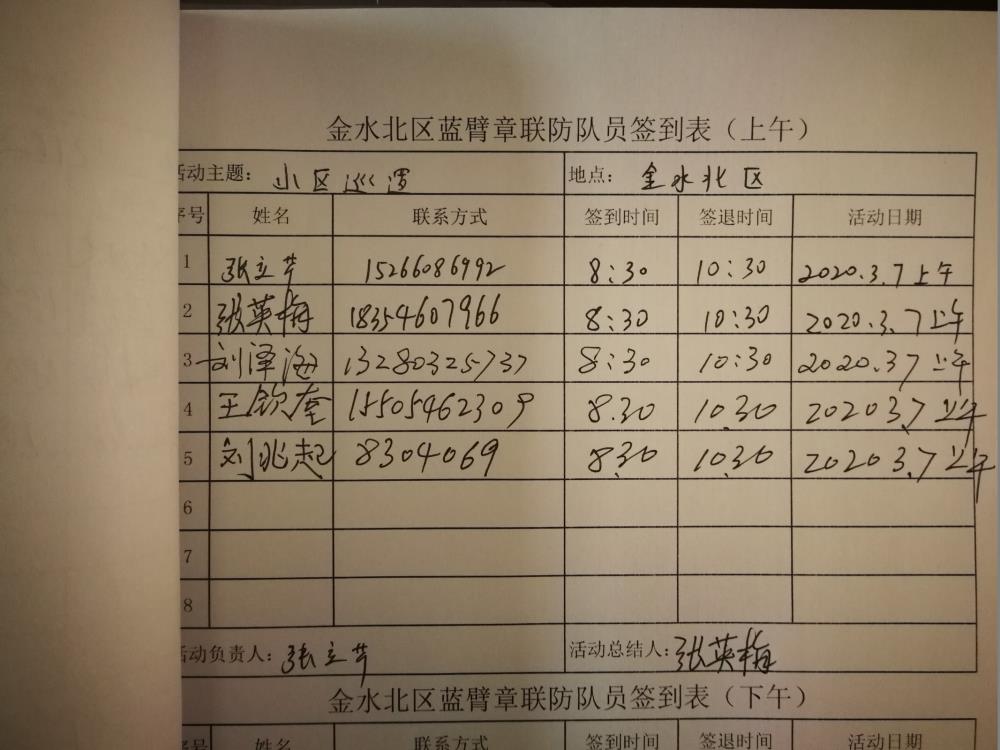 金水北区蓝臂章联防队员签到表（上午）
活动主题： 小区巡逻 地点： 金水北区
序号 姓名 联系方式 签到时间 签退时间 活动日期
1 张立芹 15266086992 8:30 10:30 2020.3.7上午
2 张英梅 18354607966 8:30 10:30 2020.3.7上午
3 刘泽海 13280325737 8:30 10:30 2020.3.7上午
4 王钦奎 15505462309 8.30 10.30 2020 3.7上午
5 刘兆起 8304069 8.30 10.30 2020 3.7上午
6
7
8
活动负责人： 张立芹 活动总结人： 张英梅
金水北区蓝臂章联防队员签到表（下午）
序号 姓名 联系方式 签到时间 签退时间 活动日期